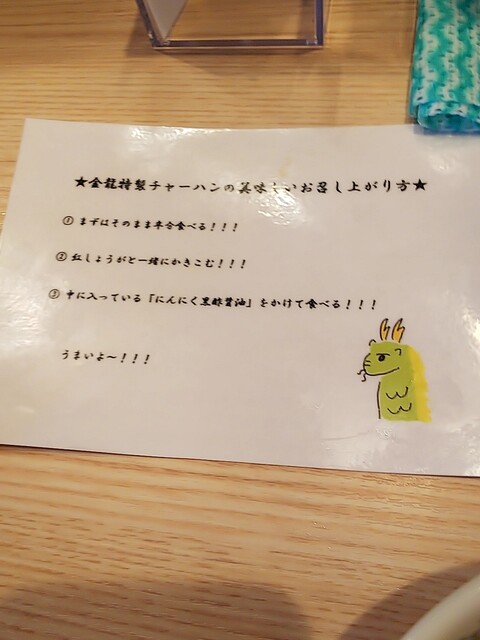 ★金龍特製チャーハンの美味しいお召し上がり方★
① まずはそのまま半分食べる！！！
② 紅しょうがと一緒にかきこむ！！！
③ 中に入っている「にんにく黒酢醤油」をかけて食べる！！！
うまいよ～！！！